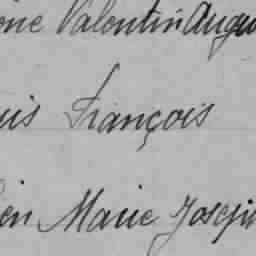 oine Valentin Augu
uis François
ien Marie Joseph